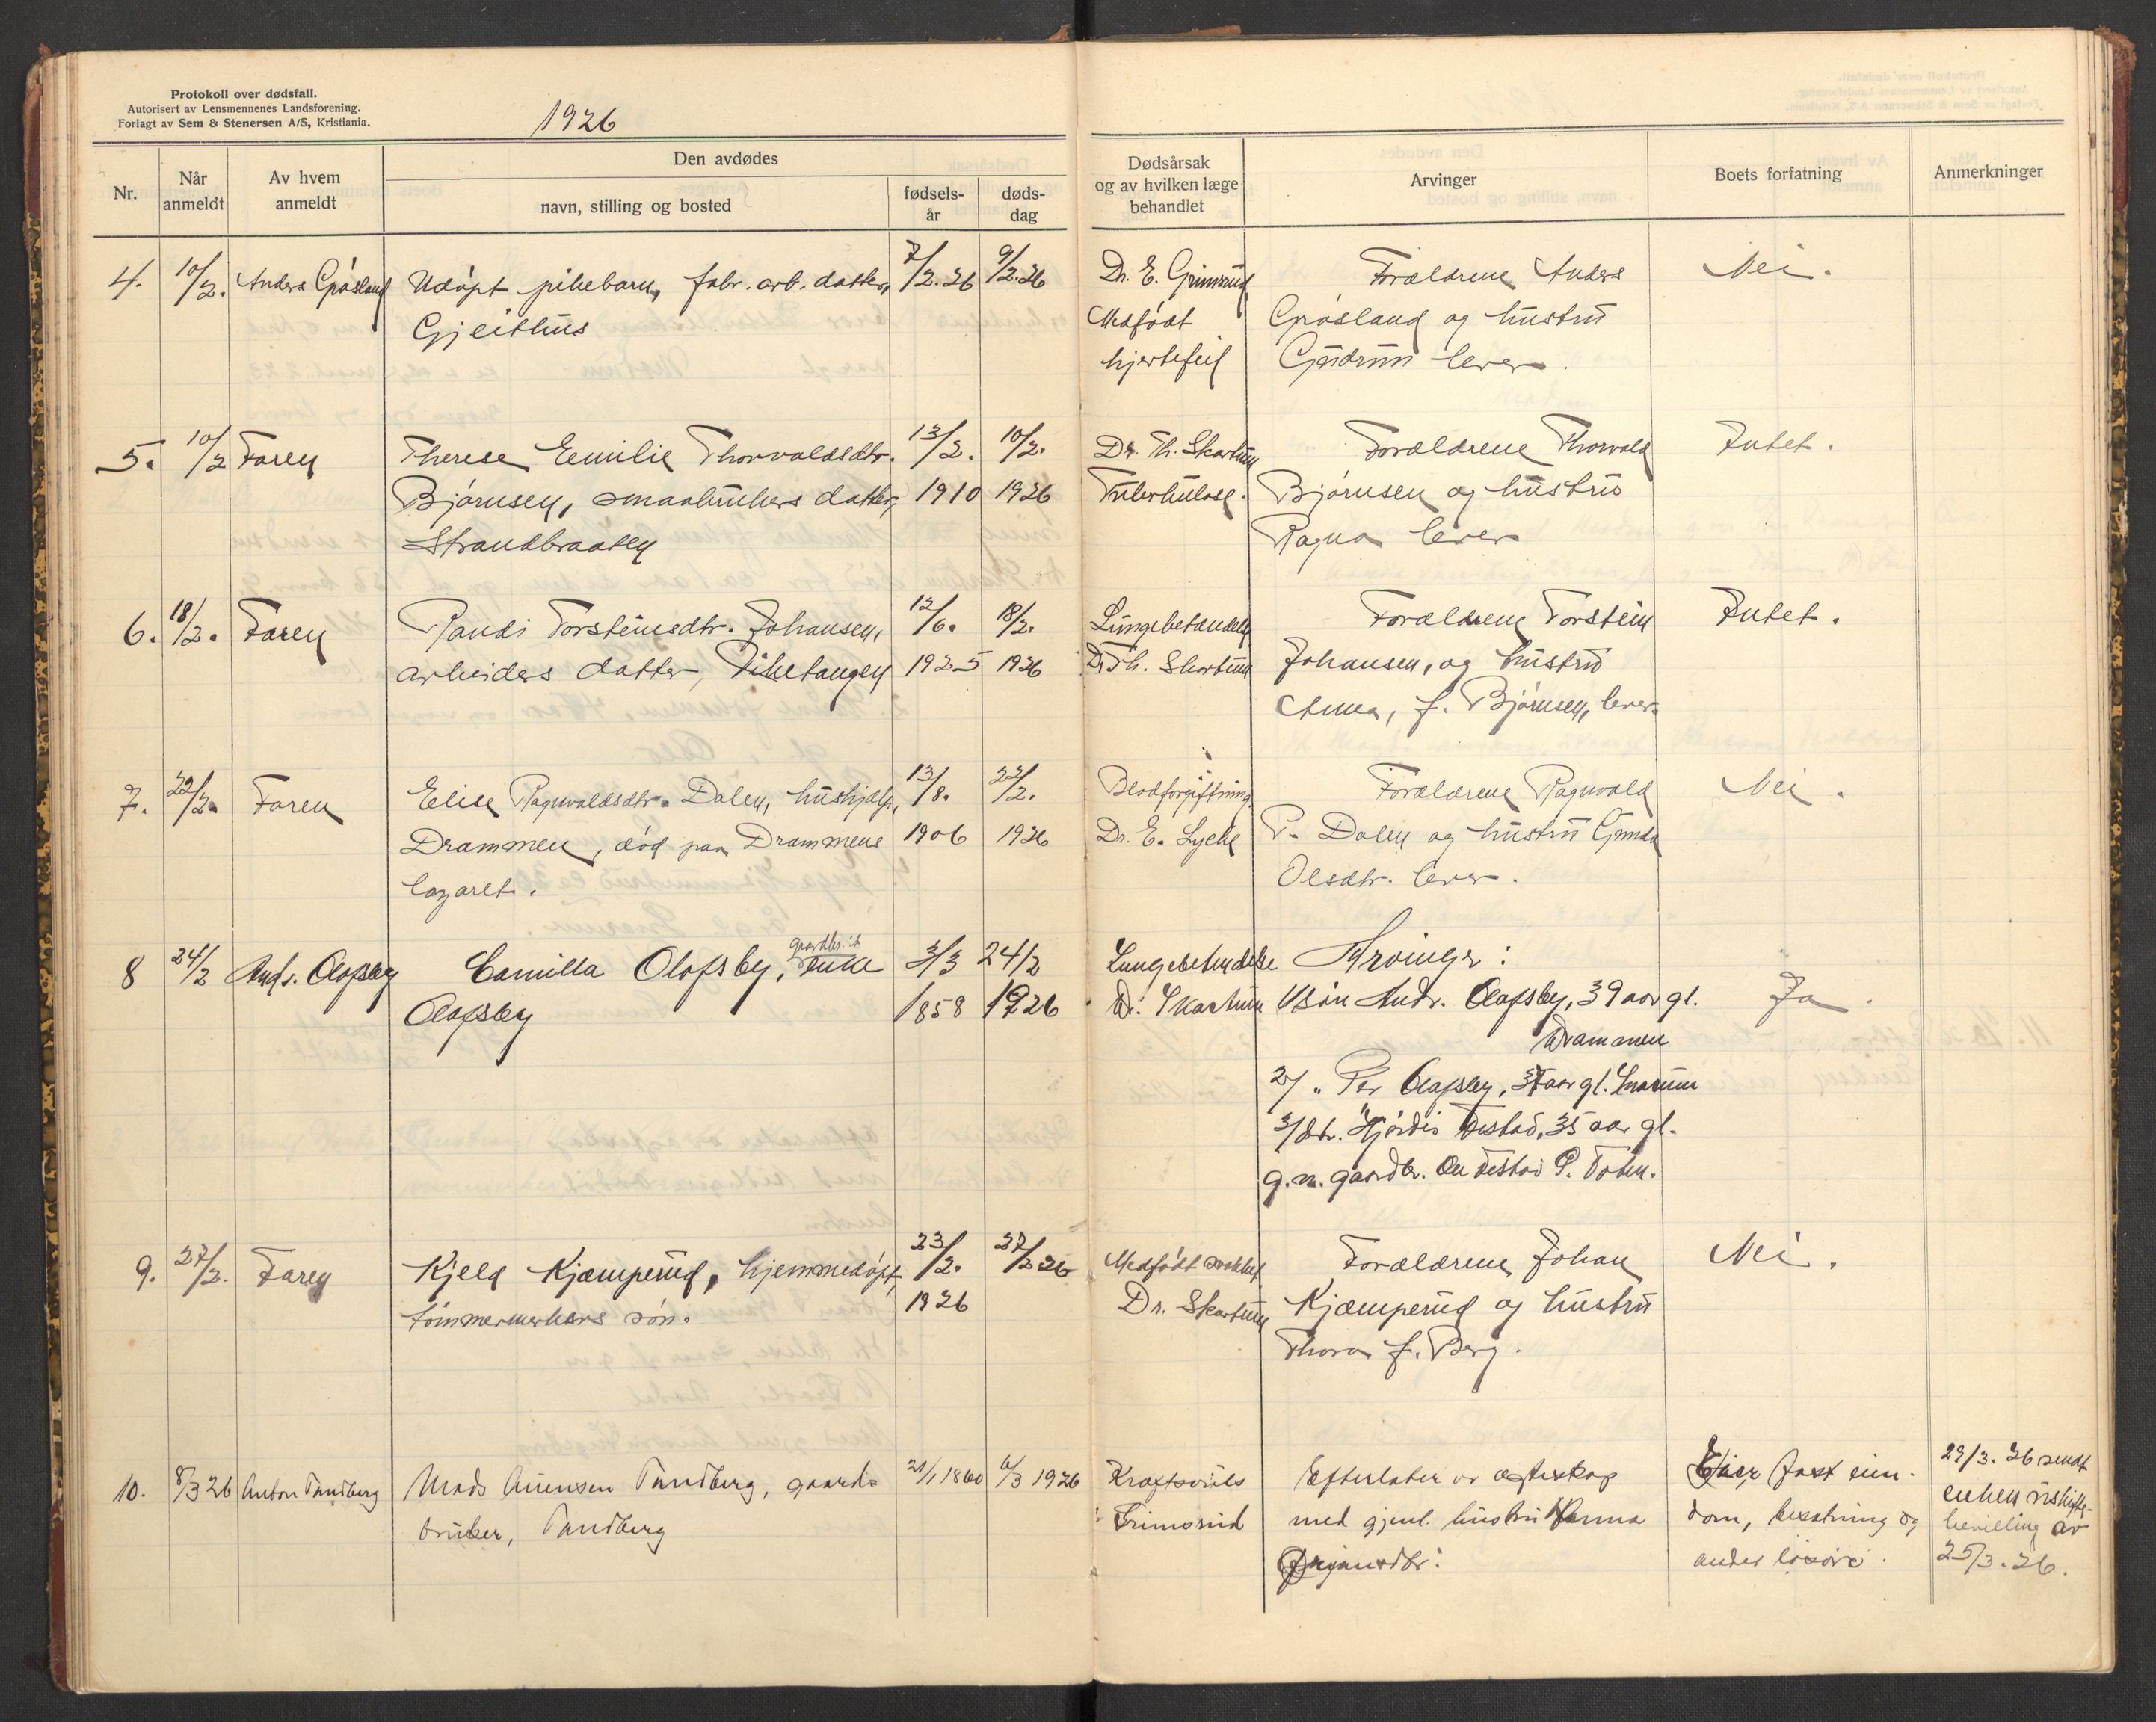 Protokoll over dødsfall.
Autorisert av Lensmennenes Landsforening.
Forlagt av Sem & Stenersen A/S, Kristiania.
1926
Nr.
Når anmeldt
Av hvem anmeldt
Den avdødes
navn, stilling og bosted
fødsels-år
døds-dag
Dødsårsak og av hvilken læge behandlet
Arvinger
Boets forfatning
Anmerkninger
4. 10/2. Anders Gråsland
Udøpt pikebarn, fabr. arb. datter,
Gjeithus
7/2.26 9/2.26
Dr. E. Grimsrud
Medfødt
hjertefeil
Forældrene Anders
Gråsland og hustru
Gudrun lever.
Nei.
5. 10/2 Faren
Therese Emilie Thorvaldsdtr.
Bjørnsen, smaabrukers datter,
Strandbraaten
13/2. 1910
10/2. 1926
Dr. Th. Skartum
Tuberkulose.
Forældrene Thorvald
Bjørnsen og hustru
Ragna lever
Intet.
6. 18/2. Faren
Randi Torsteinsdtr. Johansen,
arbeiders datter, Viketangen
12/6. 1925
18/2. 1926
Lungebetændelse
Dr. Th. Skartum
Forældrene Torstein
Johansen, og hustru
Anna, f. Bjørnsen, lever.
Intet.
7. 22/2. Faren
Elise Ragnvaldsdtr. Dalen, hushjælp,
Drammen, død paa Drammens
lazaret.
13/8. 1906
22/2. 1926
Blodforgiftning.
Dr. E. Lyche
Forældrene Ragnvald
P. Dalen og hustru Gunda
Olsdtr. lever.
Nei.
8 24/2 Andr. Olafsby
Camilla Olafsby, gaardbr. enke
Olafsby
3/3 1858
24/2 1926
Lungebetændelse
Dr. Skartum
Arvinger:
1/ Søn Andr. Olafsby, 39 aar gl.
Drammen
2/ " Per Olafsby, aar gl. Snarum
3/ Dtr. Hjørdis Festad, 35 aar gl.
g.m. gaardbr. Ole Festad Ø. Toten.
Ja.
9. 27/2. Faren
Kjeld Kjæmperud, hjemmedøpt,
tømmermerkers søn.
23/2. 1926
27/2 26
Medfødt svakhet
Dr. Skartum
Forældrene Johan
Kjæmperud og hustru
Thora f. Berg.
Nei.
10. 8/3 26 Anton Tandberg
Mads Amensen Tandberg, gaard-
bruker, Tandberg
21/1 1860
6/3 1926
Kræftsvuls
Grimsrud
Efterlater av egteskap
med gjenl. hustru Anna
Eier fast eien-
dom, besætning og
andet løsøre.
29/3. 26 sendt
enken uskifte-
bevilling av
25/3. 26.